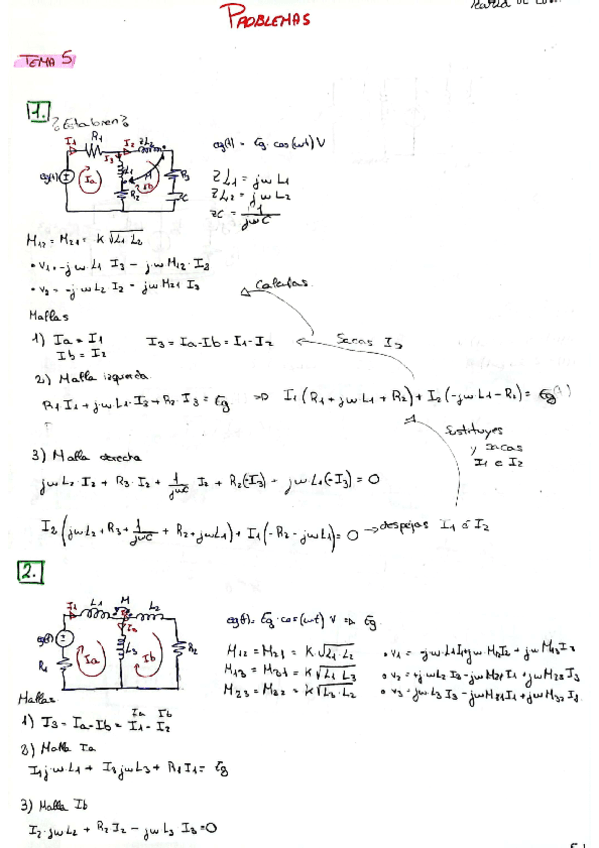 PROBLEMAS
TEMA 5
1.
¿Esta bien?
I1 R1 I2 ZL2
I3 L1 M R3
eg(t) Ia Ib
R2 C
eg(t) = Eg · cos(wt) V
ZL1 = jw L1
ZL2 = jw L2
ZC = 1/jwC
M12 = M21 = K √L1 L2
• V1 = -jw L1 I3 - jw M12 · I2
• V2 = -jw L2 I2 - jw M21 I3
Calculas
Mallas
1) Ia = I1
Ib = I2
I3 = Ia - Ib = I1 - I2
Sacas I3
2) Malla izquierda
R1 I1 + jw L1 · I3 + R2 · I3 = Eg => I1 (R1 + jw L1 + R2) + I2 (-jw L1 - R2) = Eg
Sustituyes
y sacas
I1 e I2
3) Malla derecha
jw L2 · I2 + R3 · I2 + 1/jwC I2 + R2(-I3) - jw L1(-I3) = 0
I2 (jwL2 + R3 + 1/jwC + R2 + jwL1) + I1 (-R2 - jwL1) = 0 → despejas I1 ó I2
2.
I1 L1 M L2
I3
eg(t) L3 R2
R1 Ia Ib
eg(t) = Eg · cos(wt) V => Eg
M12 = M21 = K √L1 · L2
M13 = M31 = K √L1 L3
M23 = M32 = K √L3 · L2
• V1 = jw L1 I1 + jw M12 I2 + jw M13 I3
• V2 = jw L2 I2 - jw M21 I1 + jw M23 I3
• V3 = jw L3 I3 - jw M31 I1 + jw M32 I2
Mallas
1) I3 = Ia - Ib = I1 - I2
Ia Ib
2) Malla Ia
I1 j·w·L1 + I3 jw L3 + R1 I1 = Eg
3) Malla Ib
I2 · jw L2 + R2 I2 - jw L3 I3 = 0